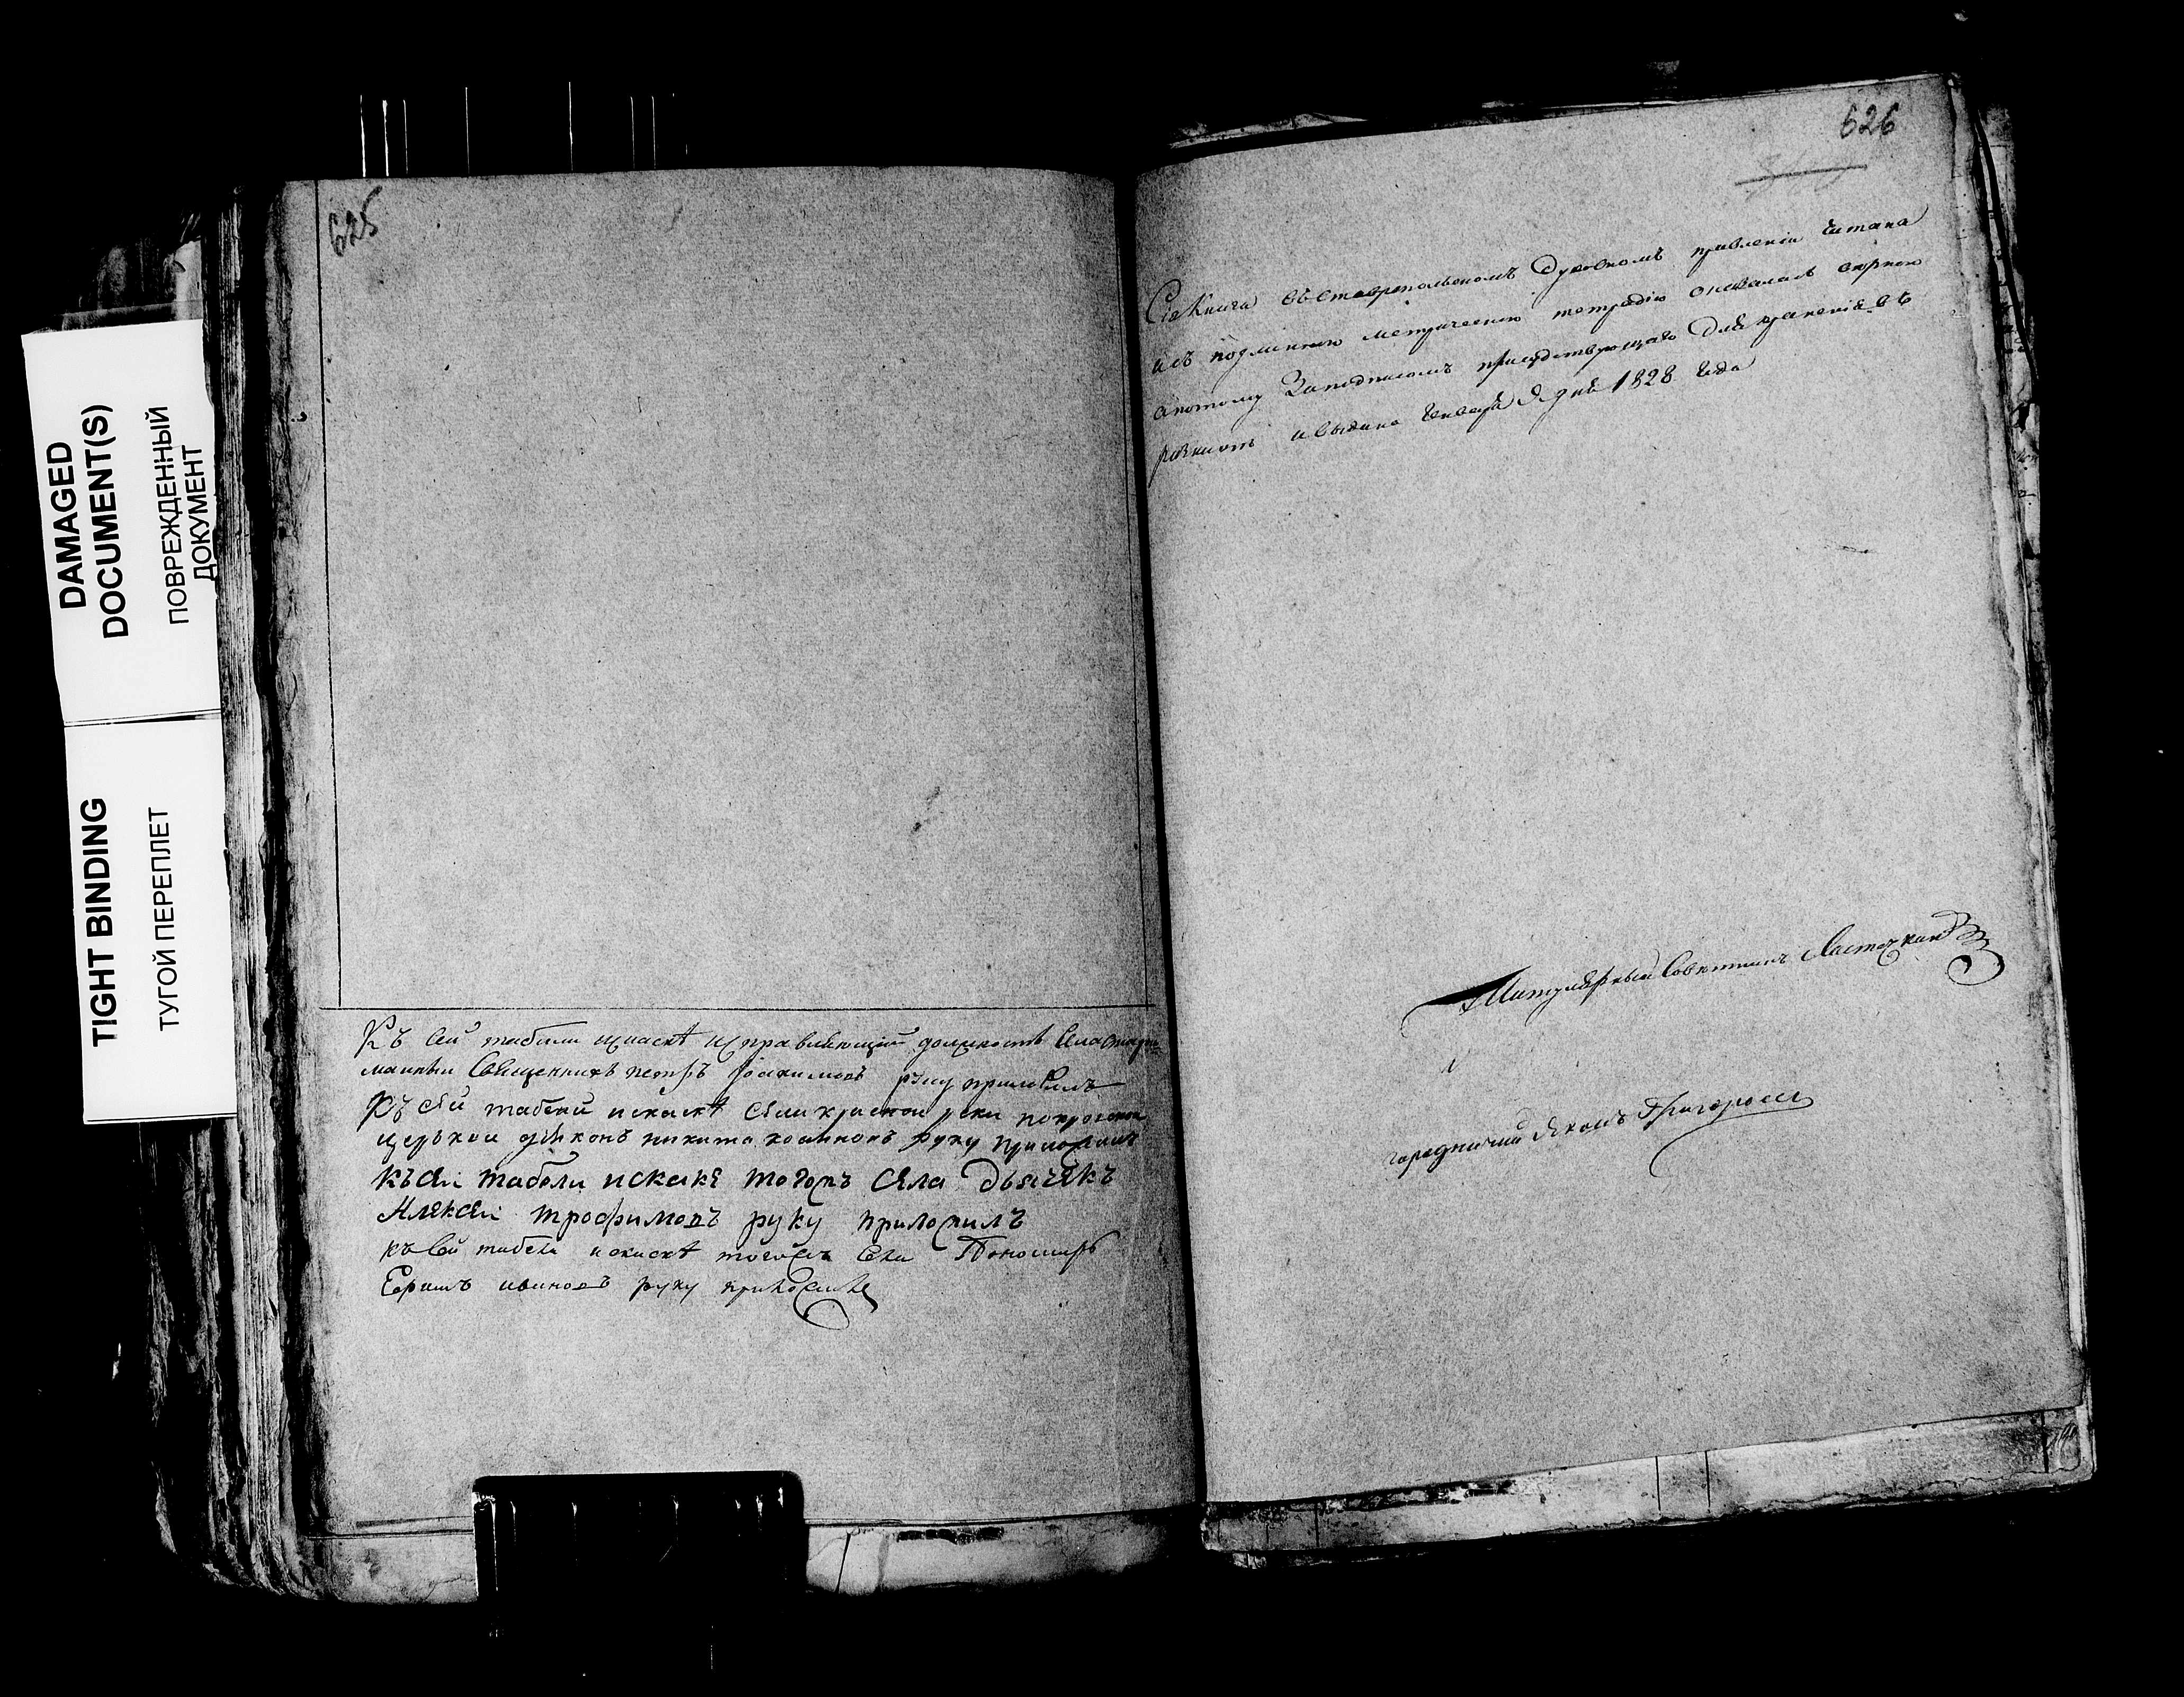 DAMAGED
DOCUMENT(S)
ПОВРЕЖДЕННЫЙ
ДОКУМЕНТ
TIGHT BINDING
ТУГОЙ ПЕРЕПЛЕТ
625
Къ сей табели исправляющій должность села
Священникъ петръ руку приложилъ
Къ сей табели села красной реки покровской
церькви никита руку приложилъ
Къ сеи табели тогожъ села дьячекъ
Алексеи трофимовъ руку приложилъ
Къ сей табели тогожъ села Пономарь
ивановъ руку приложилъ
626
Сія Книга въ Ставропольскомъ Духовномъ правленіи читана
и съ подлинною метрическою тетрадію оказалась верною
а потому За подписомъ присудствующаго для храненія въ
и выдана Генваря дня 1828 года
Титулярный Советникъ Ласточкин
городничий Яковъ Григорьевъ